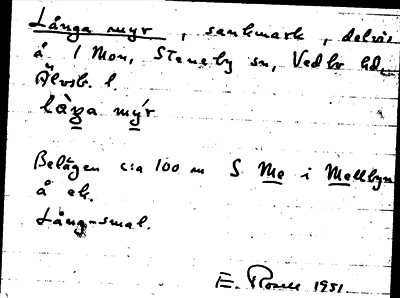 Långa myr, sankmark, delvis
å 1 Mon, Steneby sn, Vedbo hd,
Älvsb. l.
låŋa my̆r
Belägen c:a 100 m S Me i Mellbyn
å ek.
Lång-smal.
E. Rosell 1951